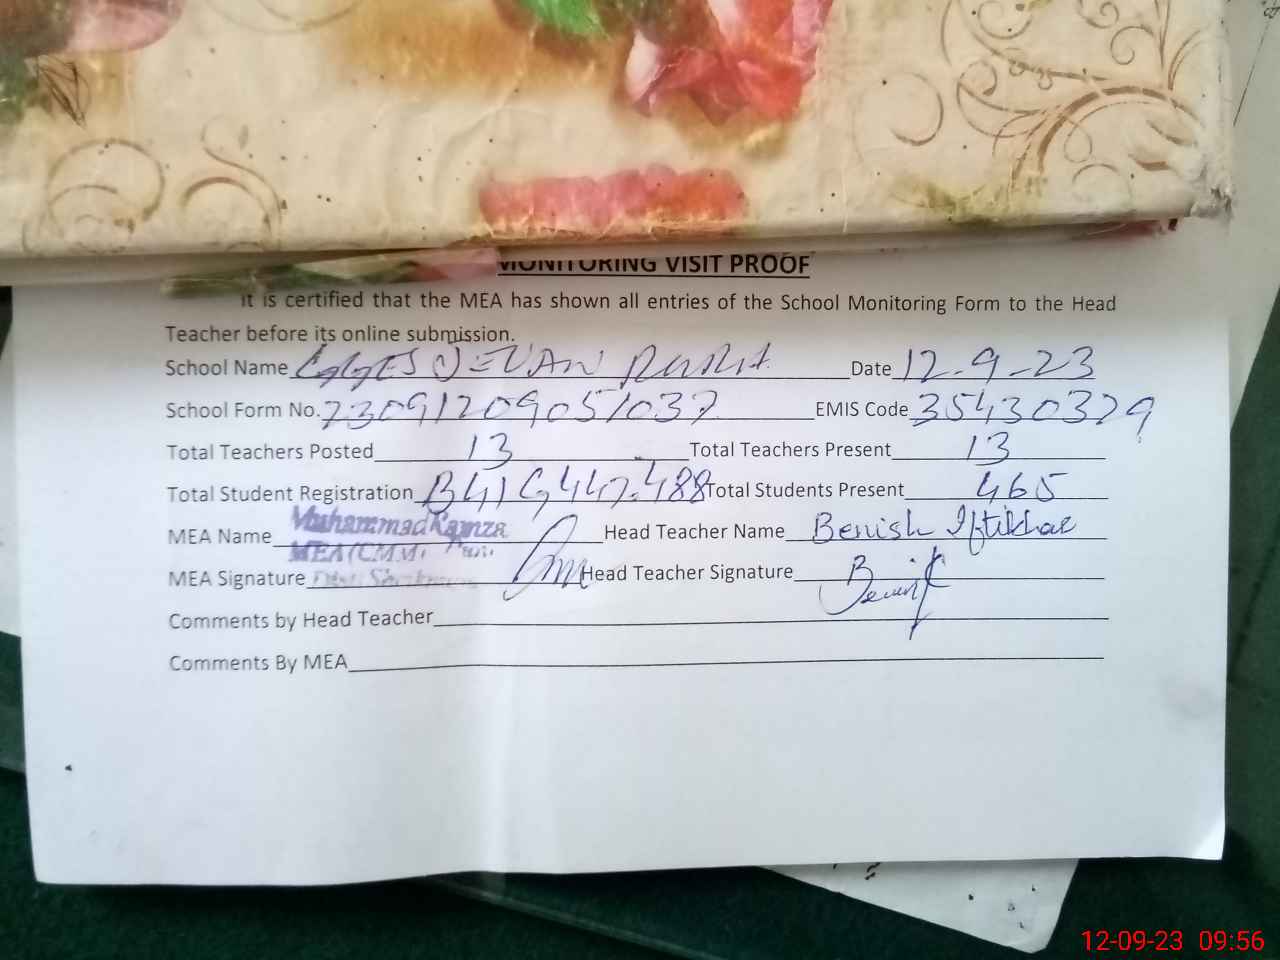 MONITORING VISIT PROOF
It is certified that the MEA has shown all entries of the School Monitoring Form to the Head
Teacher before its online submission.
School Name GGES JEVAN PURA Date 12-9-23
School Form No. 23091209051037 EMIS Code 35430329
Total Teachers Posted 13 Total Teachers Present 13
Total Student Registration B41 G447=488 Total Students Present 465
MEA Name Muhammad Head Teacher Name Benish Iftikhar
MEA
MEA Signature Head Teacher Signature
Comments by Head Teacher
Comments By MEA
12-09-23 09:56